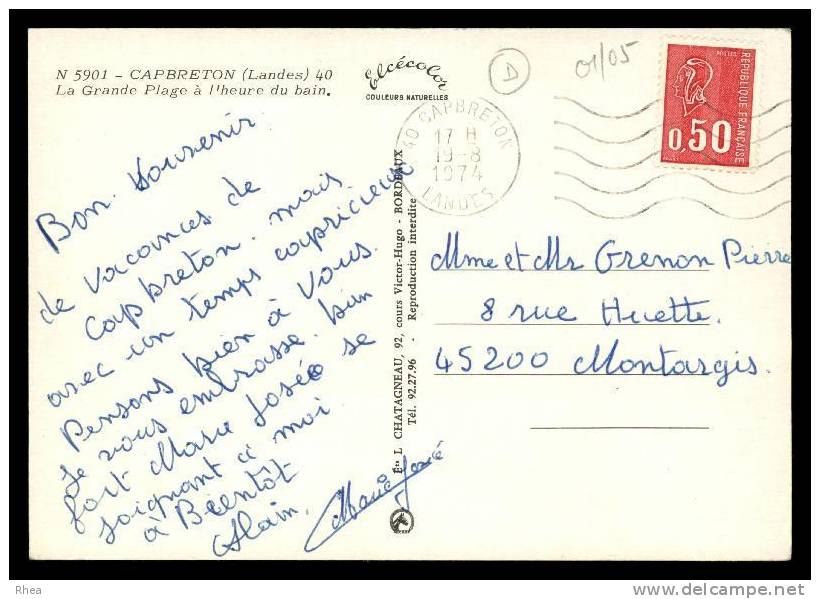 N 5901 - CAPBRETON (Landes) 40
La Grande Plage à l'heure du bain.
Elcécolor
COULEURS NATURELLES
D
01/05
POSTES
REPUBLIQUE FRANÇAISE
0,50
40 CAPBRETON
17 H
19-8
1974
LANDES
Bon Souvenir
de vacances de
Capbreton. mais
avec un temps capricieux
Pensons bien à Vous.
Je vous embrasse. bien
fort Marie Josée se
joignant à moi
à Bientôt
Alain.
Marie Josée
Ets L. CHATAGNEAU, 92, cours Victor-Hugo - BORDEAUX
Tél. 92.27.96 - Reproduction interdite
Mme et Mr Grenon Pierre
8 rue Huette.
45200 Montargis.
Rhea
www.delcampe.net